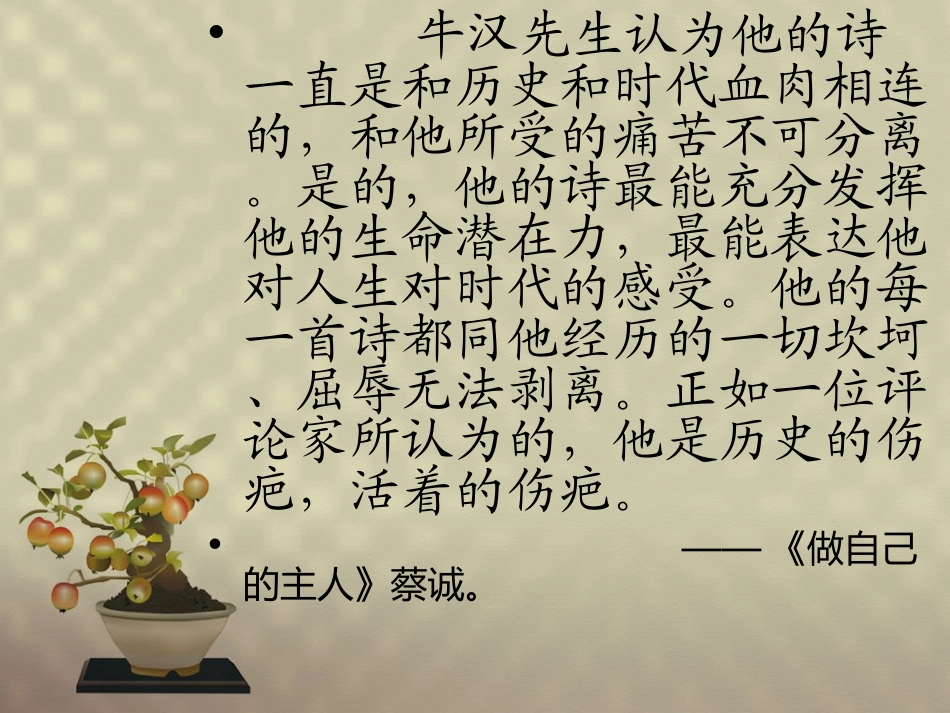 • 牛汉先生认为他的诗
一直是和历史和时代血肉相连
的，和他所受的痛苦不可分离
。是的，他的诗最能充分发挥
他的生命潜在力，最能表达他
对人生对时代的感受。他的每
一首诗都同他经历的一切坎坷
、屈辱无法剥离。正如一位评
论家所认为的，他是历史的伤
疤，活着的伤疤。
• ——《做自己
的主人》蔡诚。